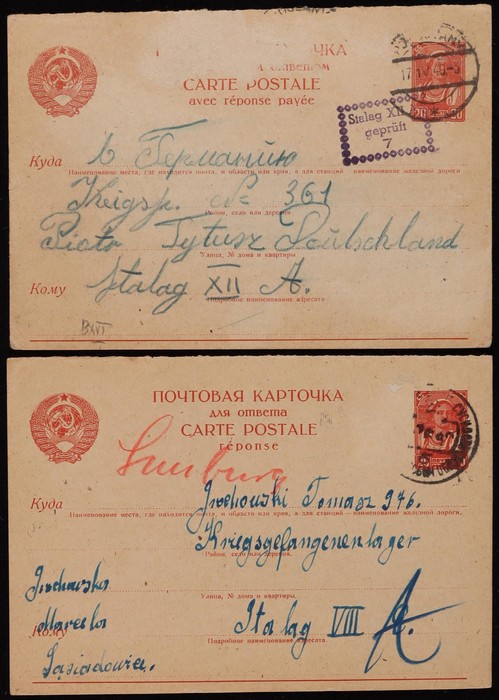 ОЧКА
ответом
CARTE POSTALE
avec réponse payée
17 IV 40
20 20
Stalag XII
geprüft
7
Куда
в Германию
Наименование места, где находится почта, и области или края, а для станций — наименование железной дороги
Kriegsp. № 361
Район, село или деревня
Piotr Tytusz Deutschland
Улица, № дома и квартиры
Кому
Stalag XII A.
Подробное наименование адресата
BXVI
ПОЧТОВАЯ КАРТОЧКА
для ответа
CARTE POSTALE
réponse
Limburg
Куда
Grochowski Tomasz 976.
Наименование места, где находится почта, и области или края, а для станций — наименование железной дороги,
Kriegsgefangenenlager
Район, село или деревня.
Улица, № дома и квартиры.
Grochowska
Marecka
Кому
Stalag VIII A
Подробное наименование адресата
Sąsiadowice.